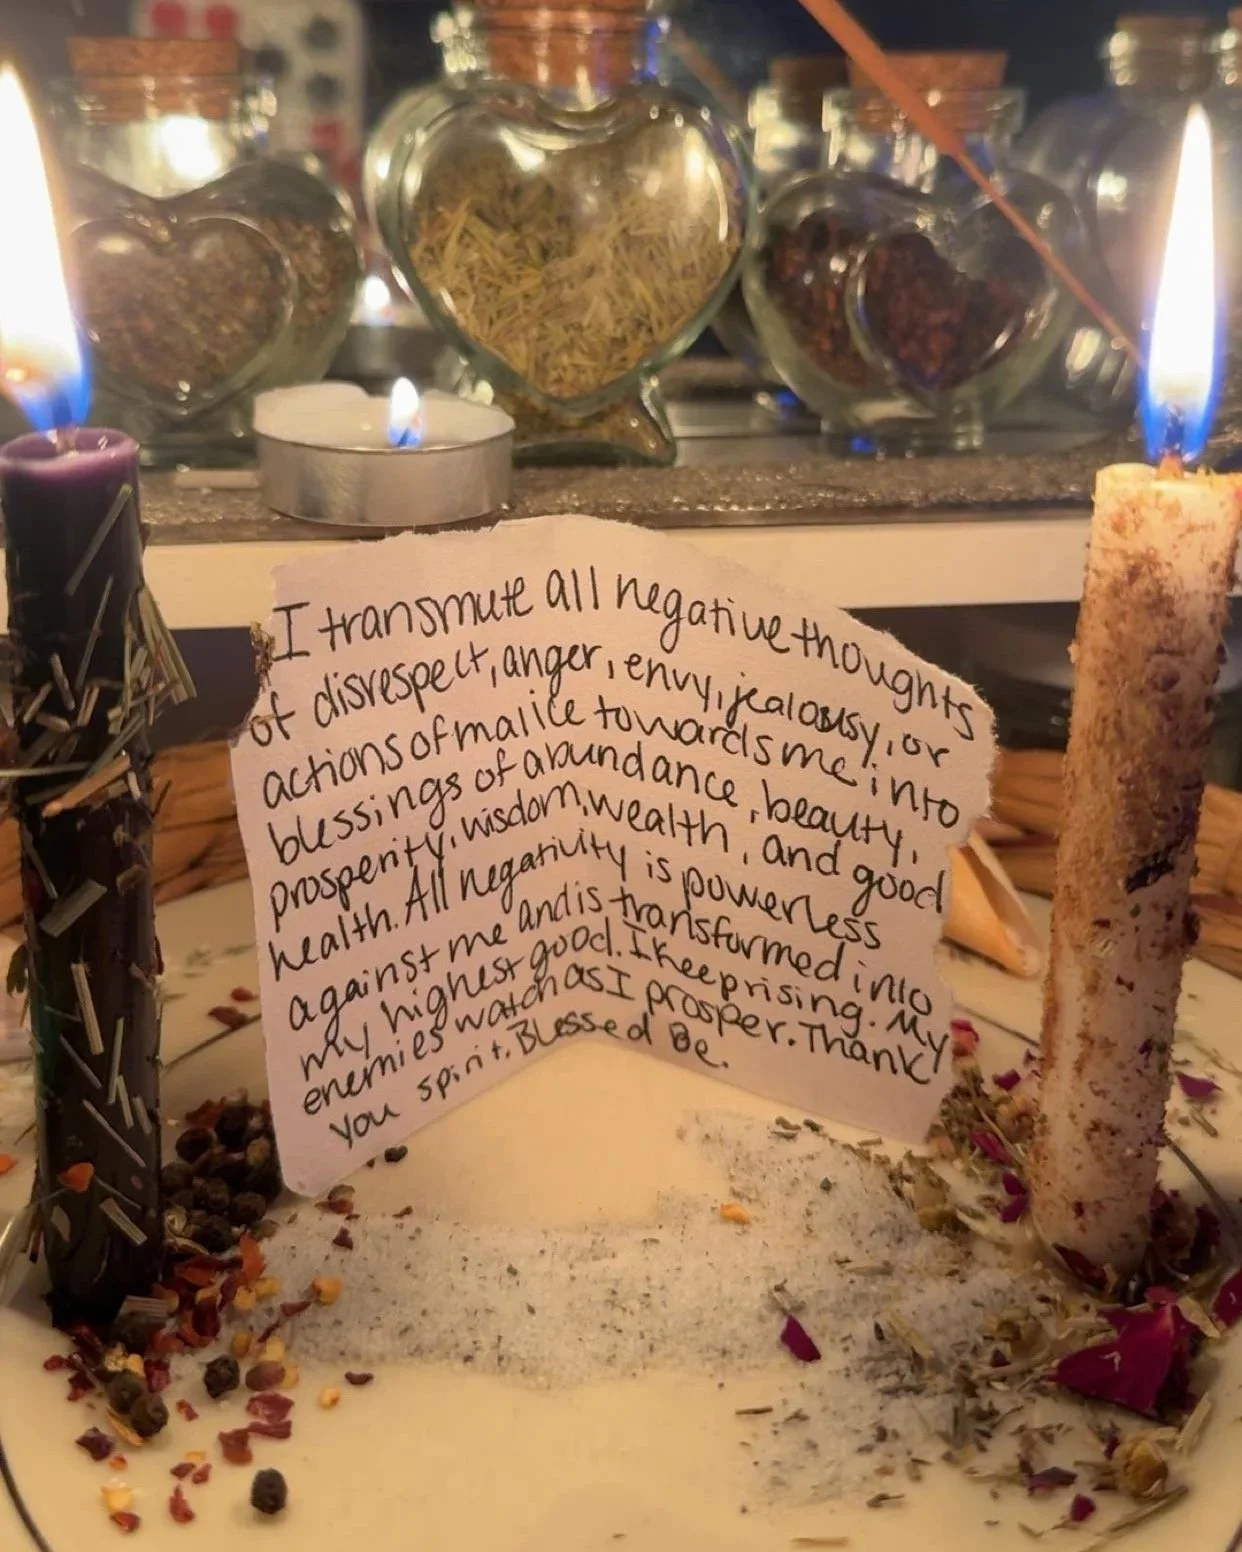 I transmute all negative thoughts
of disrespect, anger, envy, jealousy, or
actions of malice towards me into
blessings of abundance, beauty,
prosperity, wisdom, wealth, and good
health. All negativity is powerless
against me and is transformed into
my highest good. I keep rising. My
enemies watch as I prosper. Thank
you spirit. Blessed Be.